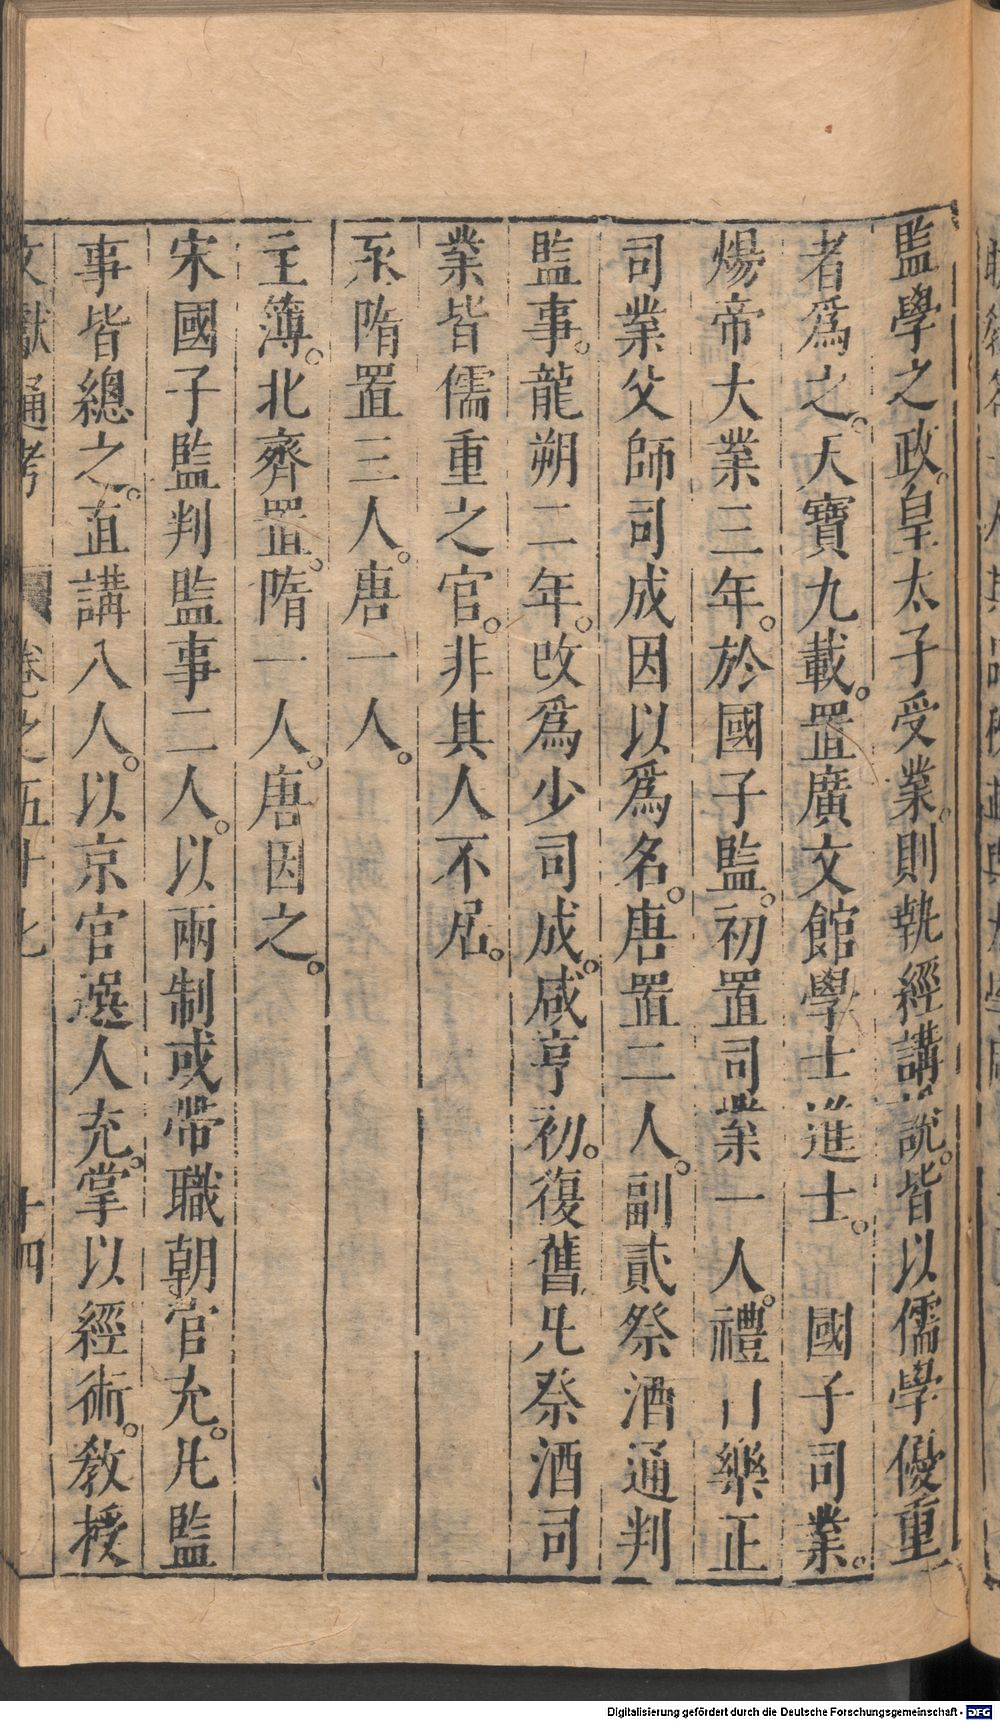 監學之政。皇太子受業。則執經講說。皆以儒學優重
者爲之。天寶九載。置廣文館學士進士。 國子司業。
煬帝大業三年。於國子監。初置司業一人。禮曰樂正
司業父師司成因以爲名。唐置二人。副貳祭酒通判
監事。龍朔二年。改爲少司成。咸亨初。復舊凡祭酒司
業皆儒重之官。非其人不居。
丞隋置三人。唐一人。
主簿。北齊置。隋一人。唐因之。
宋國子監判監事二人。以兩制或帶職朝官充。凡監
事皆總之。直講八人。以京官選人充。掌以經術。教授
文獻通考 卷之五十七 十四
Digitalisierung gefördert durch die Deutsche Forschungsgemeinschaft - DFG